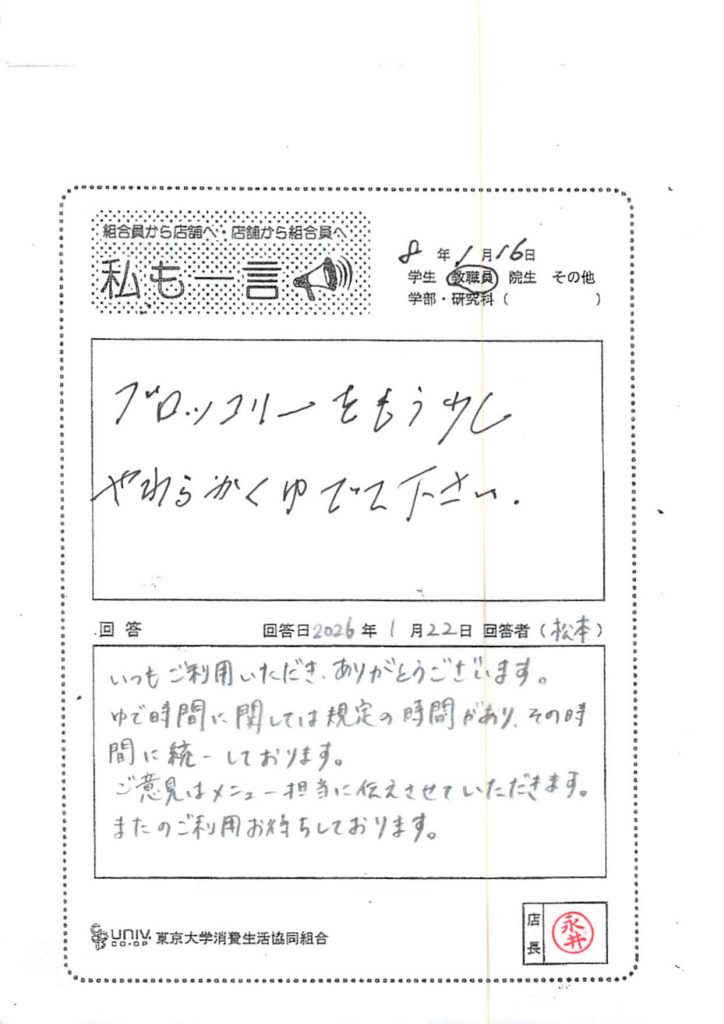 組合員から店舗へ・店舗から組合員へ
私も一言
8年1月16日
学生 教職員 院生 その他
学部・研究科( )
ブロッコリーをもう少し
やわらかくゆでて下さい.
回答 回答日2026年1月22日 回答者(松本)
いつもご利用いただき、ありがとうございます。
ゆで時間に関しては規定の時間があり、その時
間に統一しております。
ご意見はメニュー担当に伝えさせていただきます。
またのご利用お待ちしております。
UNIV. CO-OP 東京大学消費生活協同組合
店長 永井